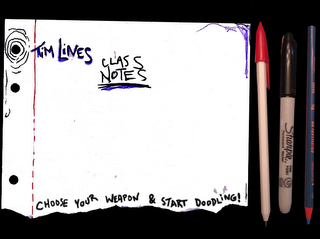 TIM LINES
CLASS
NOTES
CHOOSE YOUR WEAPON & START DOODLING!
Sharpie